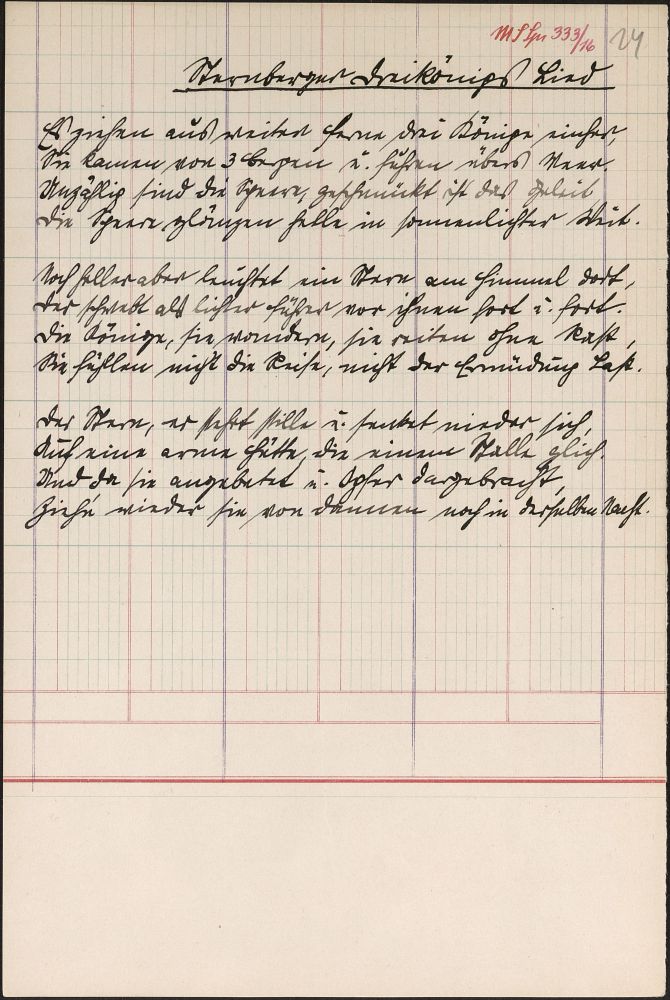 MS Spr 333/16 24
Sternberger Dreikönigs Lied
Es ziehen aus weiter Ferne drei Könige einher,
Sie kamen von 3 Bergen u. fuhren übers Meer.
Unzählig sind die Speere, geschmückt ist das Geleit
Die Speere glänzen helle in sonnenlichter Weit.
Noch heller aber leuchtet ein Stern am Himmel dort,
Der schwebt als lichter Führer vor ihnen fort u. fort.
Die Könige, sie wandern, sie reiten ohne Rast,
Sie fühlen nicht die Reise, nicht der Ermüdung Last.
Der Stern, er steht stille u. senket nieder sich,
Auf eine arme Hütte, die einem Stalle glich.
Und da sie angebetet u. Opfer dargebracht,
Zieh'n wieder sie von dannen noch in derselben Nacht.